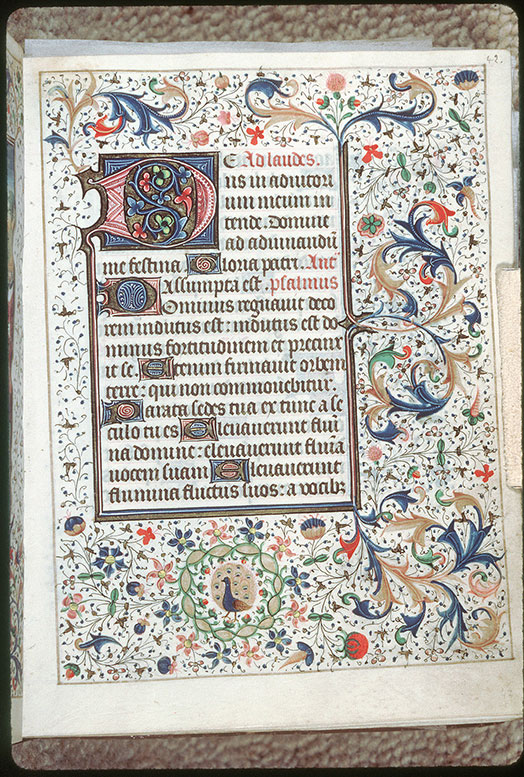 62.
DE Ad laudes
us in adiutori
um meum in
tende. Domine
ad adiuuandū
me festina. Gloria patri. Ant̄
Assumpta est. psalmus
Dominus regnauit deco
rem indutus est: indutus est do
minus fortitudinem et precinx
it se. Etenim firmauit orbem
terre: qui non commouebitur.
Parata sedes tua ex tunc a se
culo tu es Eleuauerunt flu
na domine: eleuauerunt flum̄a
uocem suam Eleuauerunt
flumina fluctus suos: a vocib⁊